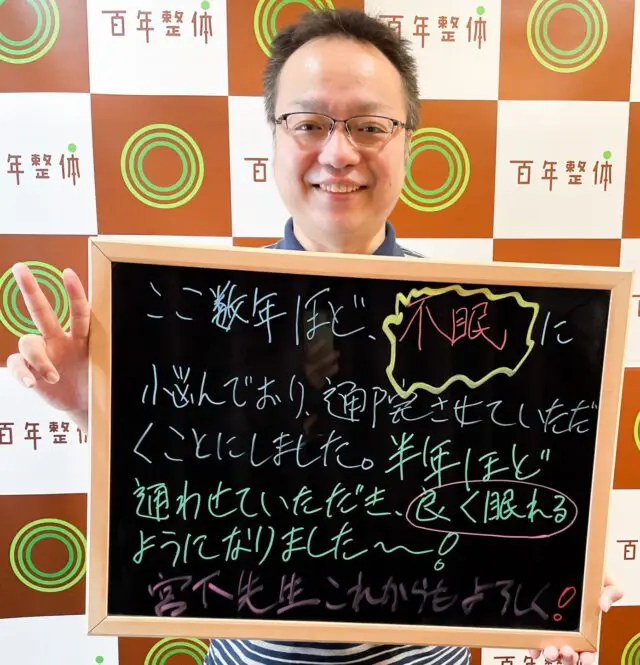 百年整体
百年整体
年整体
百年整体
ここ数年ほど、不眠に
悩んでおり、通院させていただ
くことにしました。半年ほど
通わせていただき、良く眠れる
ようになりました〜!
宮下先生これからもよろしく!
百年整体
百
百年整体